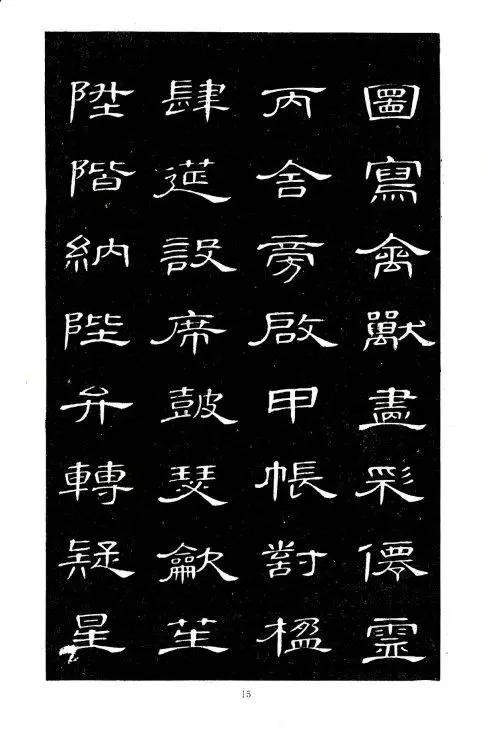 圖寫禽獸畫彩僊靈
丙舍旁啟甲帳對楹
肆莚設席鼓瑟龡笙
陞階納陛弁轉疑星
15